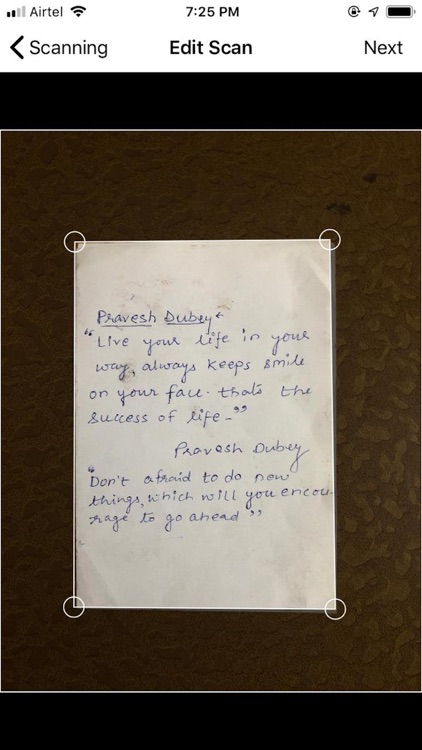 Airtel 7:25 PM
Scanning Edit Scan Next
Pravesh Dubey
"Live your life in your
way, always keeps smile
on your face. that's the
success of life-"
Pravesh Dubey
"Don't afraid to do new
things, which will you encou-
rage to go ahead"